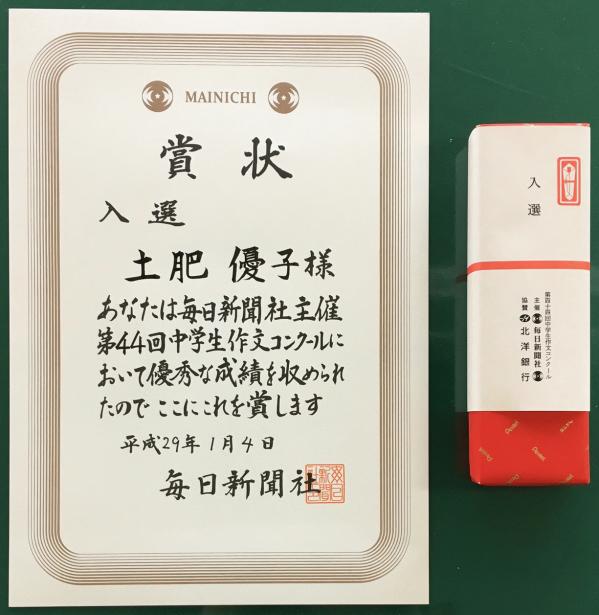 MAINICHI
賞状
入選
土肥 優子様
あなたは毎日新聞社主催
第44回中学生作文コンクールに
おいて優秀な成績を収められ
たので ここにこれを賞します
平成29年1月4日
毎日新聞社
入選
第四十四回中学生作文コンクール
主催 毎日新聞社
協賛 北洋銀行
Pentel
Pentel
Pentel